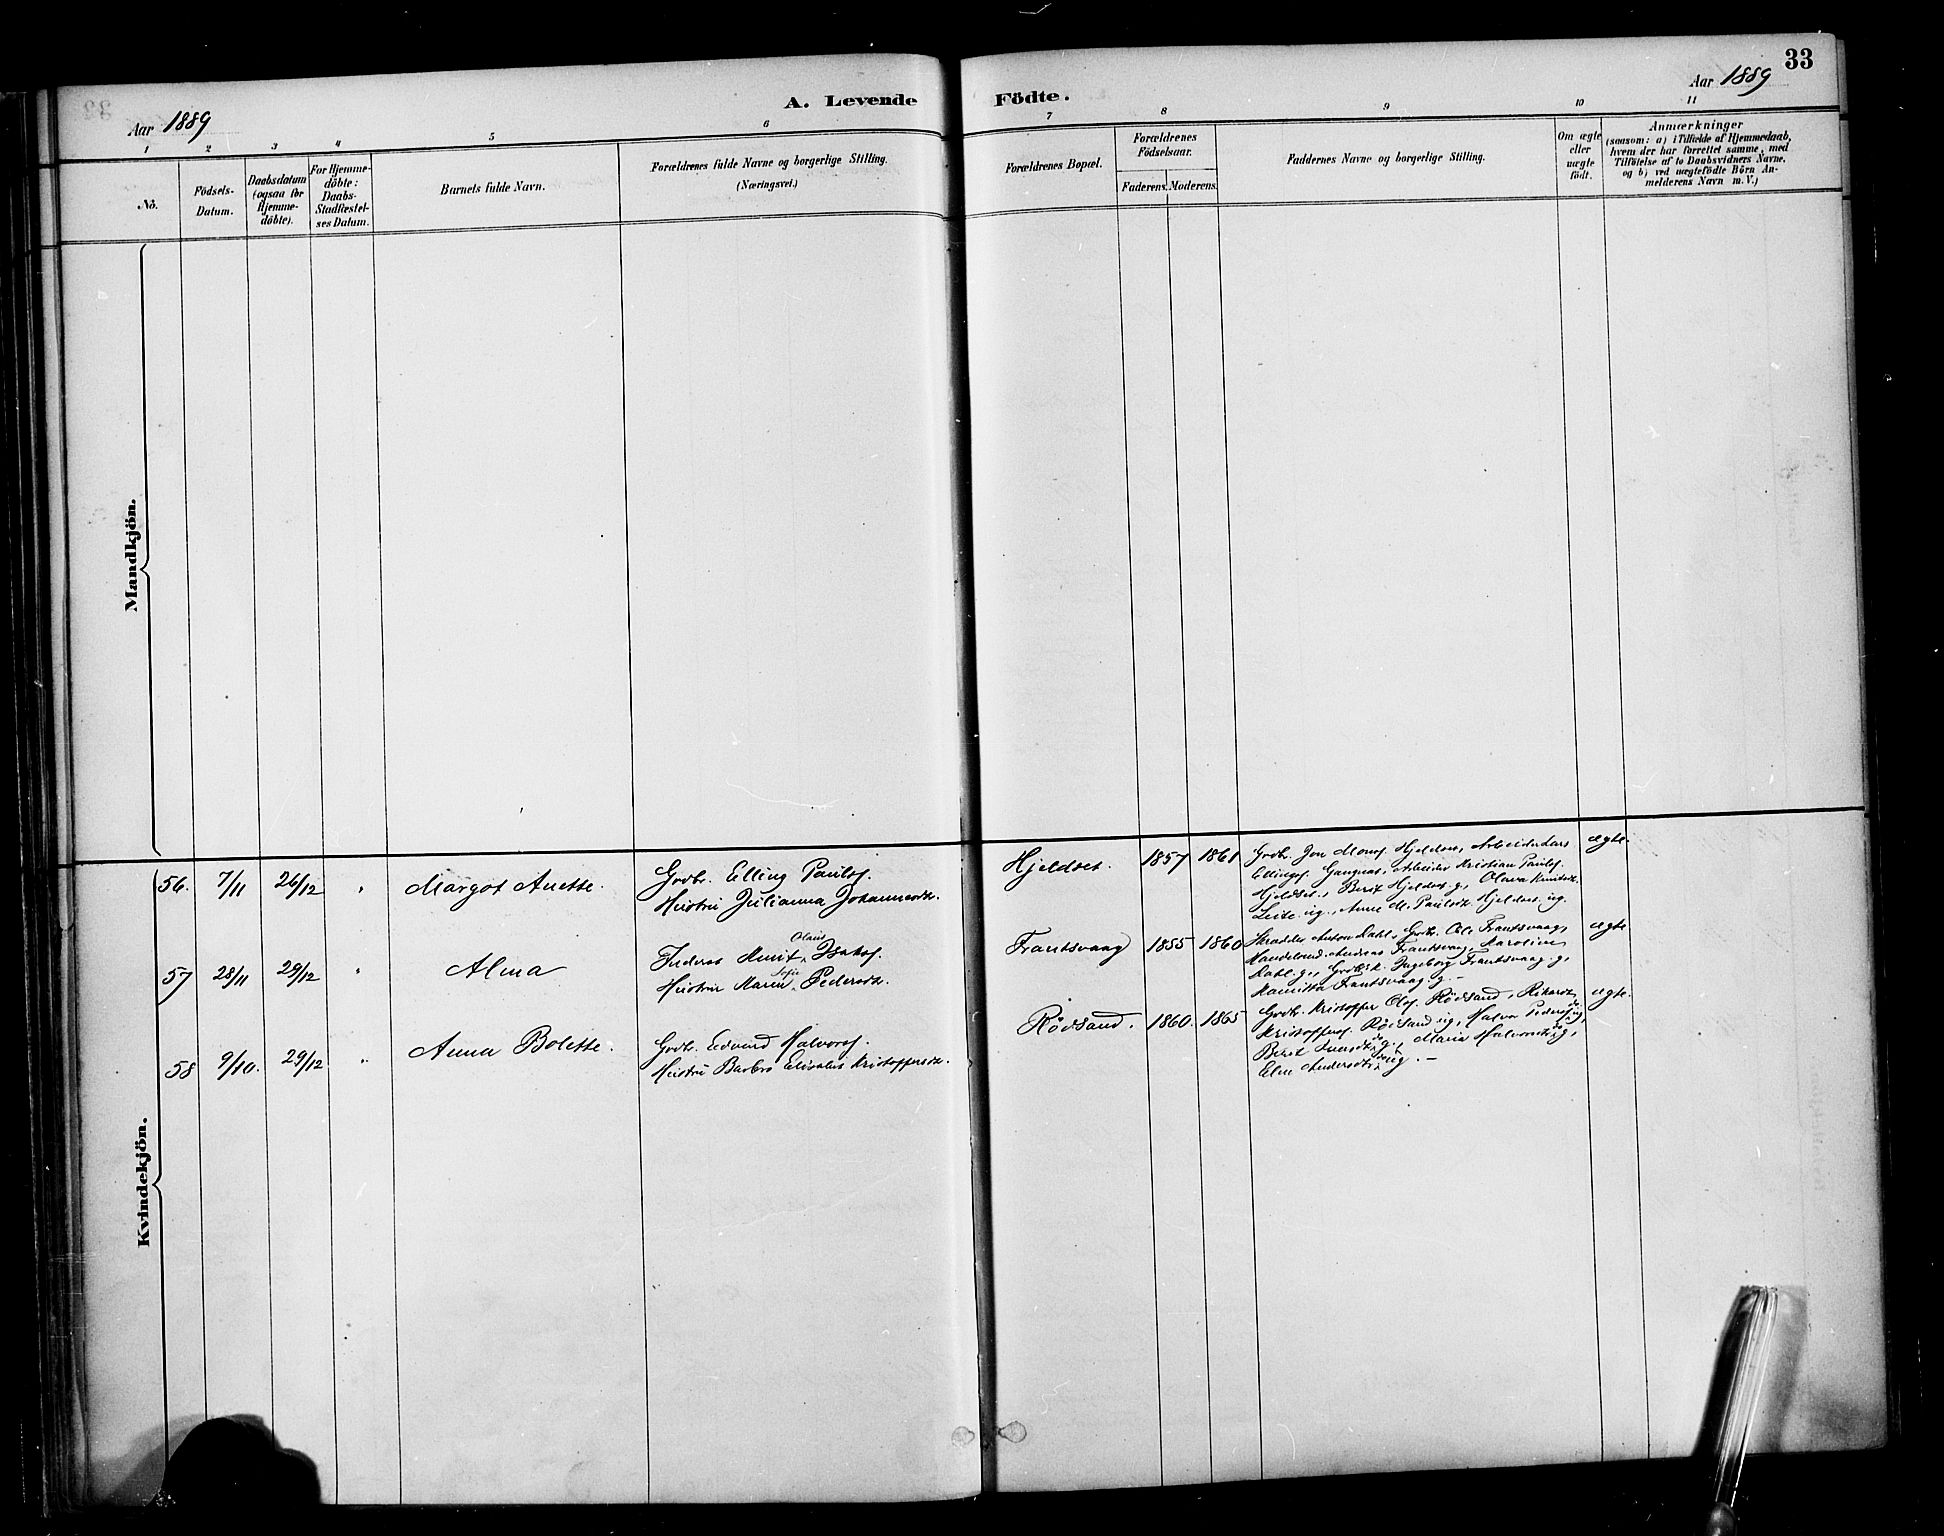 33
Aar 1889
A. Levende Födte.
Aar 1889
1 2 3 4 5 6 7 8 9 10 11
No.
Födsels-
Datum.
Daabsdatum
(ogsaa for
Hjemme-
döbte).
For Hjemme-
döbte:
Daabs-
Stadfæstel-
ses Datum.
Barnets fulde Navn.
Forældrenes fulde Navne og borgerlige Stilling.
(Næringsvei.)
Forældrenes Bopæl.
Forældrenes
Födselsaar.
Faderens. Moderens.
Faddernes Navne og borgerlige Stilling.
Om ægte
eller
uægte
födt.
Anmærkninger
(saasom: a) i Tilfælde af Hjemmedaab,
hvem der har forrettet samme, med
Tilföielse af to Daabsvidners Navne,
og b) ved uægtefödte Börn An-
melderens Navn m. V.)
Mandkjön.
Kvindekjön.
56. 7/11 26/12 " Margot Anette.
Grdbr. Elling Paulsf.
Hustru Julianna Johannesdt.
Hjeldset. 1857 1861
Grdbr. Jon Monsf. Hjeldsen, Arbeider Lars
Ellingsf. Gangnat, Arbeider Kristian Paulsf.
Hjeldset, Berit Hjeldset g., Olava Knutsdt.
Leite ug., Anne M. Paulsdt. Hjeldset ug.
ægte.
57 28/11 29/12 " Alma
Inderst Knut Olaus Isaksf.
Hustru Maren Sofie Pedersdt.
Frantsvaag 1855 1860
Skrædder Anton Dahl, Grdbr. Ole Frantsvaag,
Handelsmd. Andreas Frantsvaag, Karoline
Dahl g., Grdbrk. Ingeborg Frantsvaag g.,
Frantsvaag g.-
ægte
58 9/10. 29/12 " Anna Bolette.
Grdbr. Edvard Halvorsf.
Hustru Barbro Elisabet Kristoffersdt.
Rødsand. 1860. 1865
Grdbr. Kristoffer Olsf. Rødsand, Rikard
Kristoffersf. Rødsand ug, Halvor Pedersf. do ug,
Berit Iversdt. do g., Maria Halvorsdt. do g,
Eline Andersdt. do ug.-
ægte.